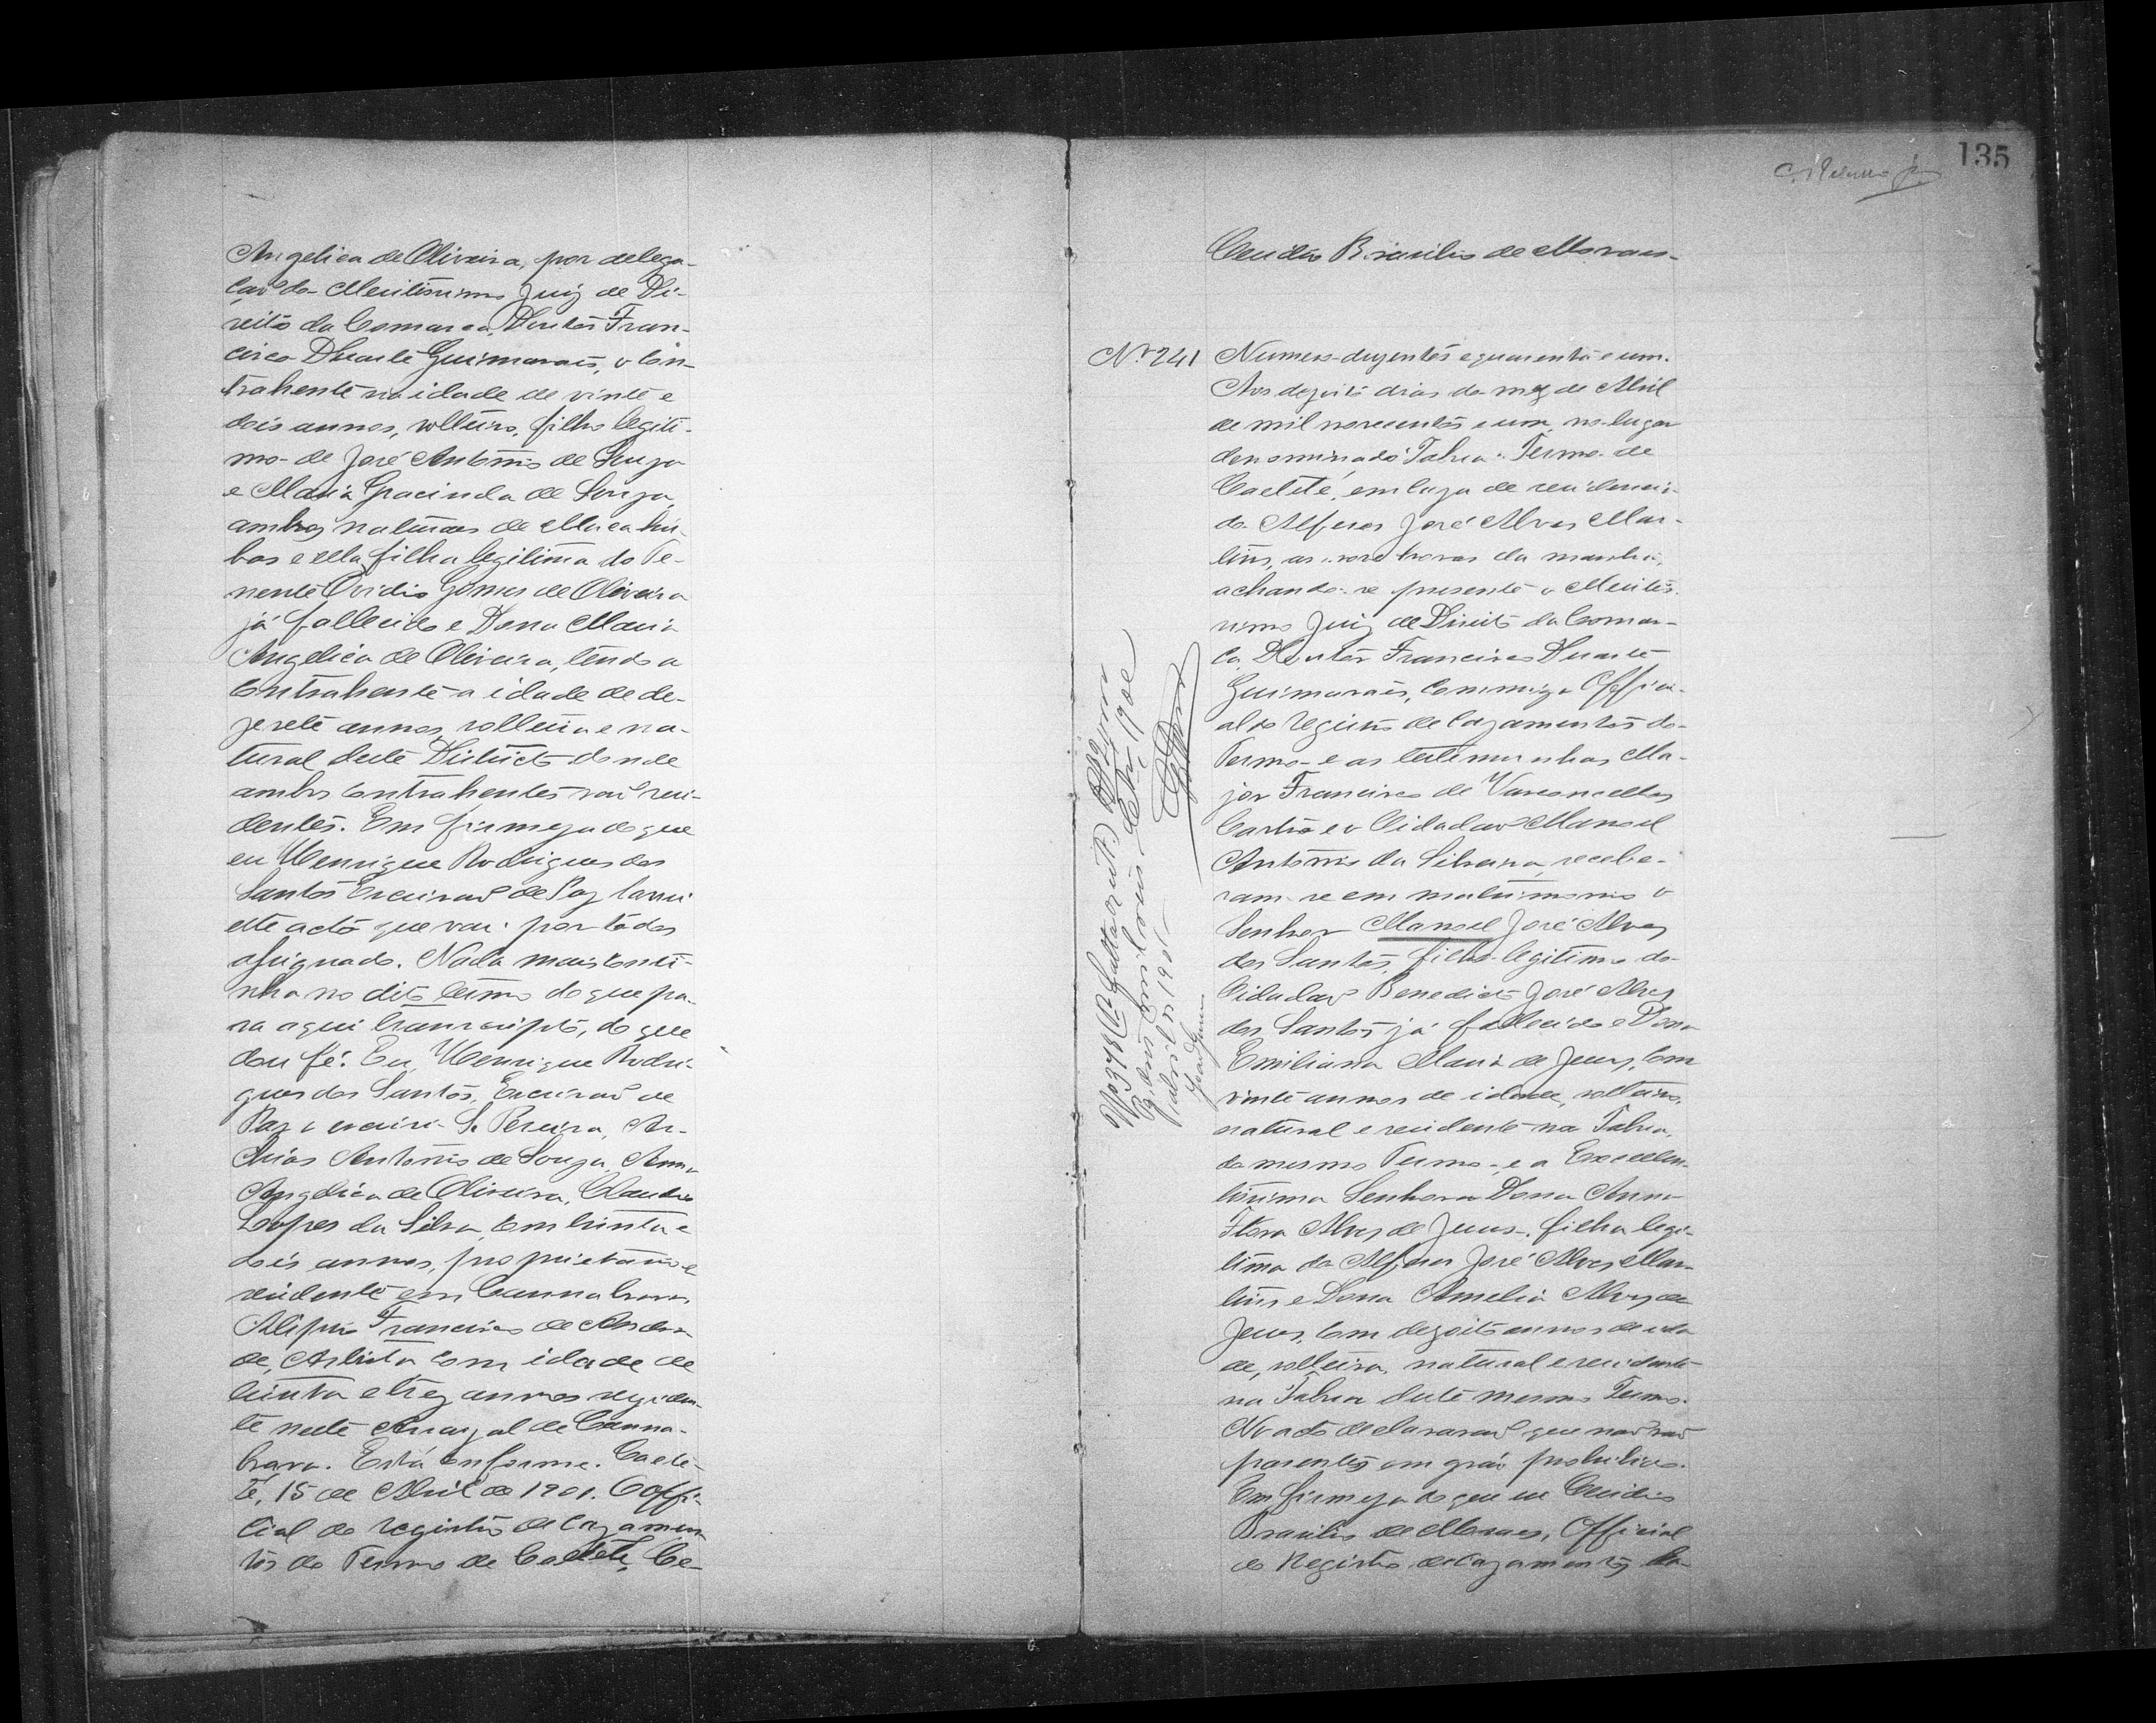 Angelica de Oliveira, por delega-
ção do Meritissimo Juiz de Di-
reito da Comarca, Doutor Fran-
cisco Duarte Guimarães, o Con-
trahente na idade de vinte e
dois annos, solteiro, filho legiti-
mo de José Antonio de Souza
e Maria Gracinda de Souza
ambos naturaes de Macahu-
bas e ella filha legitima do Te-
nente Ovidio Gomes de Oliveira
já fallecido e Dona Maria
Angelica de Oliveira, tendo a
Contrahente a idade de de-
zesete annos, solteira e na-
tural deste Districto donde
ambos Contrahentes são resi-
dentes. Em firmeza do que
eu Henrique Rodrigues dos
Santos Escrivão de Paz lavrei
este acto que vai por todos
assignado. Nada mais conti-
nha no dito termo do que pa-
ra aqui transcripto, do que
dou fé. Eu, Henrique Rodri-
gues dos Santos, Escrivão de
Paz o escrivi. S. Pereira, Ar-
Antonio de Souza, Anna
Angelica de Oliveira, Claudio
Lopes da Silva, Com trinta e
dois annos, proprietario e
residente em Cannabrava,
Alipio Francisco de Andra-
de, Artista com idade de
trinta e trez annos reziden-
te neste Arrayal de Canna-
brava. Está Conforme. Caete-
té, 15 de Abril de 1901. O Offi-
cial do registro de Cazamen
tos do Termo de Caeteté, Ce-
135
Cenidio Brasilio de Moraes-
Nº 241 Numero duzentos e quarenta e um.
Aos dezoito dias do mez de Abril
de mil novecentos e um, no lugar
denominado Tabua Termo de
Caeteté, em caza de residencia
do Alferes José Alves Mar-
tins, as nove horas da manhã,
achando-se presente o Meritis-
simo Juiz de Direito da Comar-
ca, Doutor Francisco Duarte
Guimarães, Commigo Offici-
al do registro de Cazamentos do
Termo e as testemunhas Ma-
jor Francisco de Vasconcellos
Castro e o Cidadão Manoel
Antonio da Silveira, recebe-
ram-se em matrimonio o
Senhor Manoel José Alves
dos Santos, filho legitimo do
Cidadão Benedicto José Alves
dos Santos já fallecido e Dona
Emiliana Maria de Jesus, Com
vinte annos de idade, solteiro,
natural e residente na Tabua,
do mesmo Termo, e a Excellen-
tissima Senhora Dona Anna
Flora Alves de Jesus, filha legi-
tima do Alferes José Alves Mar-
tins e Dona Amelia Alves de
Jesus, Com dezoito annos de ida
de, solteira, natural e residente
na Tabua deste mesmo Termo.
No acto declararaõ que naõ saõ
parentes em gráo prohibido.
Em firmeza do que eu Cenidio
Brasilio de Moraes, Official
do Registro de Cazamentos